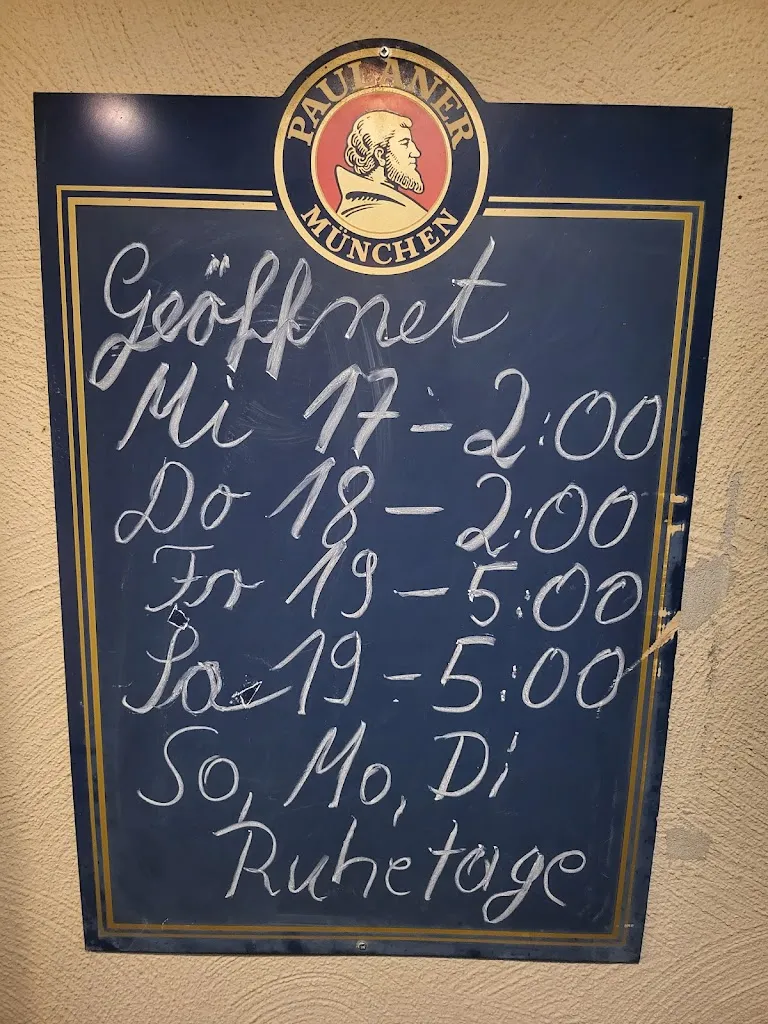 PAULANER
MÜNCHEN
Geöffnet
Mi 17 - 2:00
Do 18 - 2:00
Fr 19 - 5:00
Sa 19 - 5:00
So, Mo, Di
Ruhetage